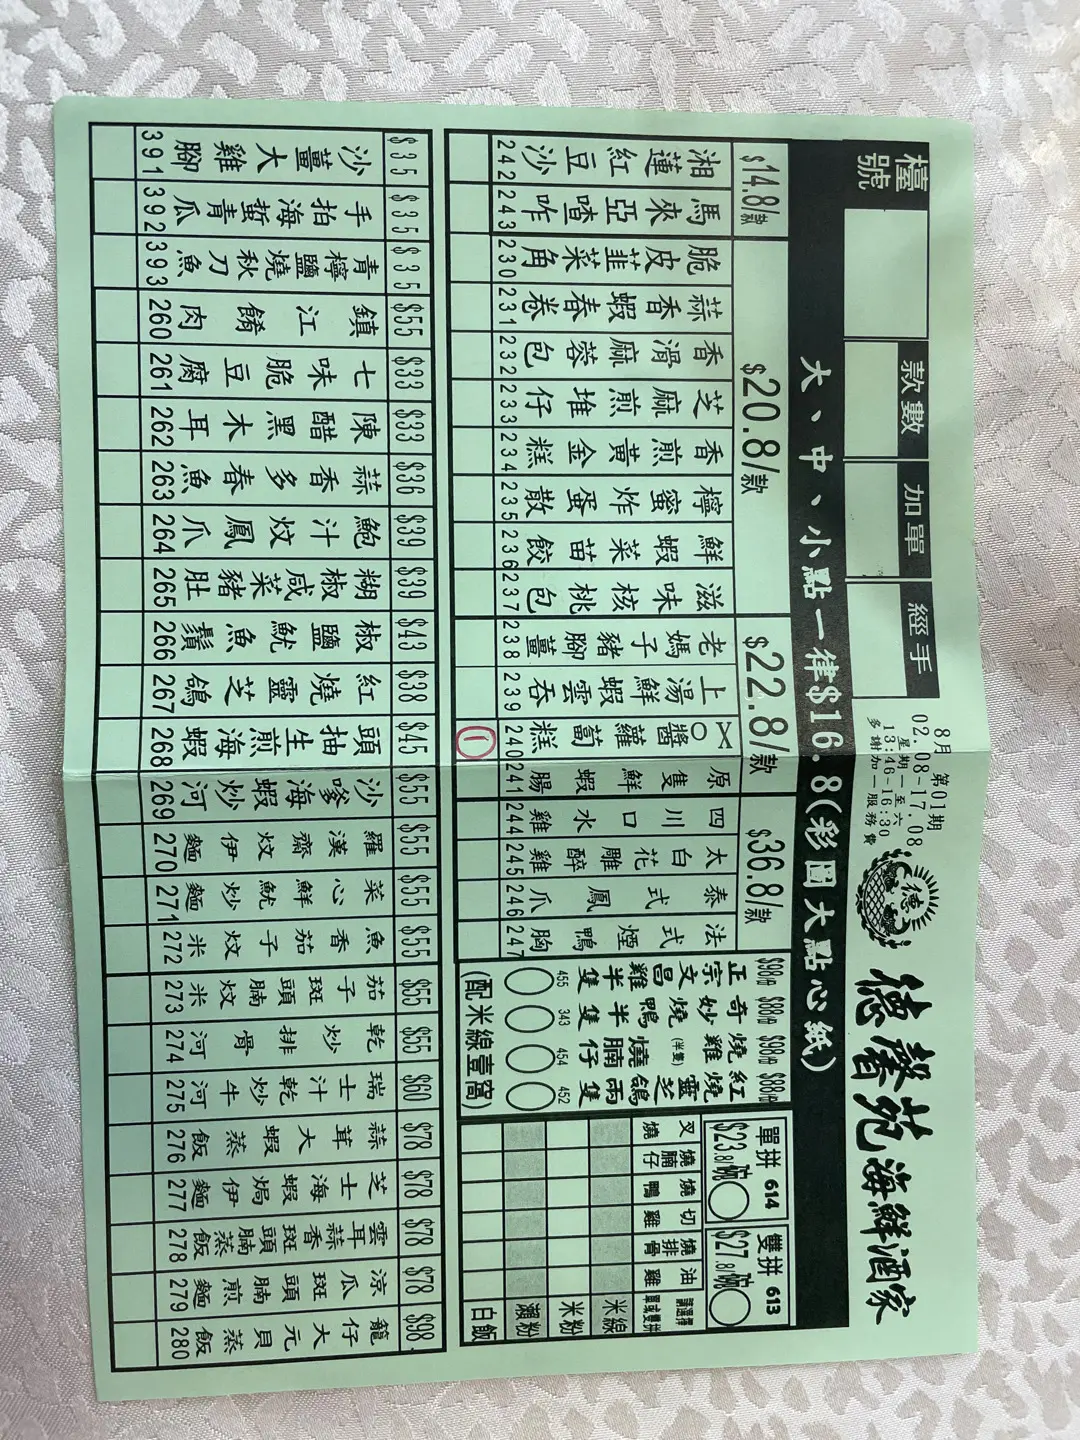 檯號
款數
加單
經手
8月 第01期
02.08-17.08
星期一至六
13:46-16:30
多謝加一服務費
德馨苑海鮮酒家
大、中、小點一律$16.8(彩圖大點心紙)
$14.8/款
$20.8/款
$22.8/款
$36.8/款
湘蓮紅豆沙 242
馬來亞喳咋 243
脆皮韮菜角 230
蒜香蝦春卷 231
香滑麻蓉包 232
芝麻煎堆仔 233
香煎黃金糕 234
檸蜜炸蛋散 235
鮮蝦菜苗餃 236
滋味核桃包 237
老媽子豬腳薑 238
上湯鮮蝦雲吞 239
XO醬蘿蔔糕 240 1
原隻鮮蝦腸 241
四川口水雞 244
太白花雕醉雞 245
泰式鳳爪 246
法式煙鴨胸 247
$98/份 正宗文昌雞半隻 455
$88/份 奇妙燒鴨半隻 343
$98/份 燒雞(半隻)燒腩仔 454
$88/份 紅燒靈芝鴿兩隻 452
(配米線壹窩)
單拼 614
$23.8/碗
雙拼 613
$27.8/碗
叉燒
燒腩仔
燒鴨
切雞
燒排骨
油雞
請選擇單或雙拼
米線
米粉
瀨粉
白飯
$35 沙薑大雞腳 391
$35 手拍海蜇青瓜 392
$35 青檸鹽燒秋刀魚 393
$55 鎮江餚肉 260
$33 七味脆豆腐 261
$33 陳醋黑木耳 262
$36 蒜香多春魚 263
$39 鮑汁炆鳳爪 264
$39 糊椒咸菜豬肚 265
$43 椒鹽魷魚鬚 266
$38 紅燒靈芝鴿 267
$45 頭抽生煎海蝦 268
$55 沙嗲海蝦炒河 269
$55 羅漢齋炆伊麵 270
$55 菜心鮮魷炒麵 271
$55 魚香茄子炆米 272
$55 茄子斑頭腩炆米 273
$55 乾炒排骨河 274
$60 瑞士汁乾炒牛河 275
$78 蒜茸大蝦蒸飯 276
$78 芝士海蝦焗伊麵 277
$78 雲耳蒜香斑頭腩蒸飯 278
$78 涼瓜斑頭腩煎麵 279
$98 籠仔大元貝蒸飯 280